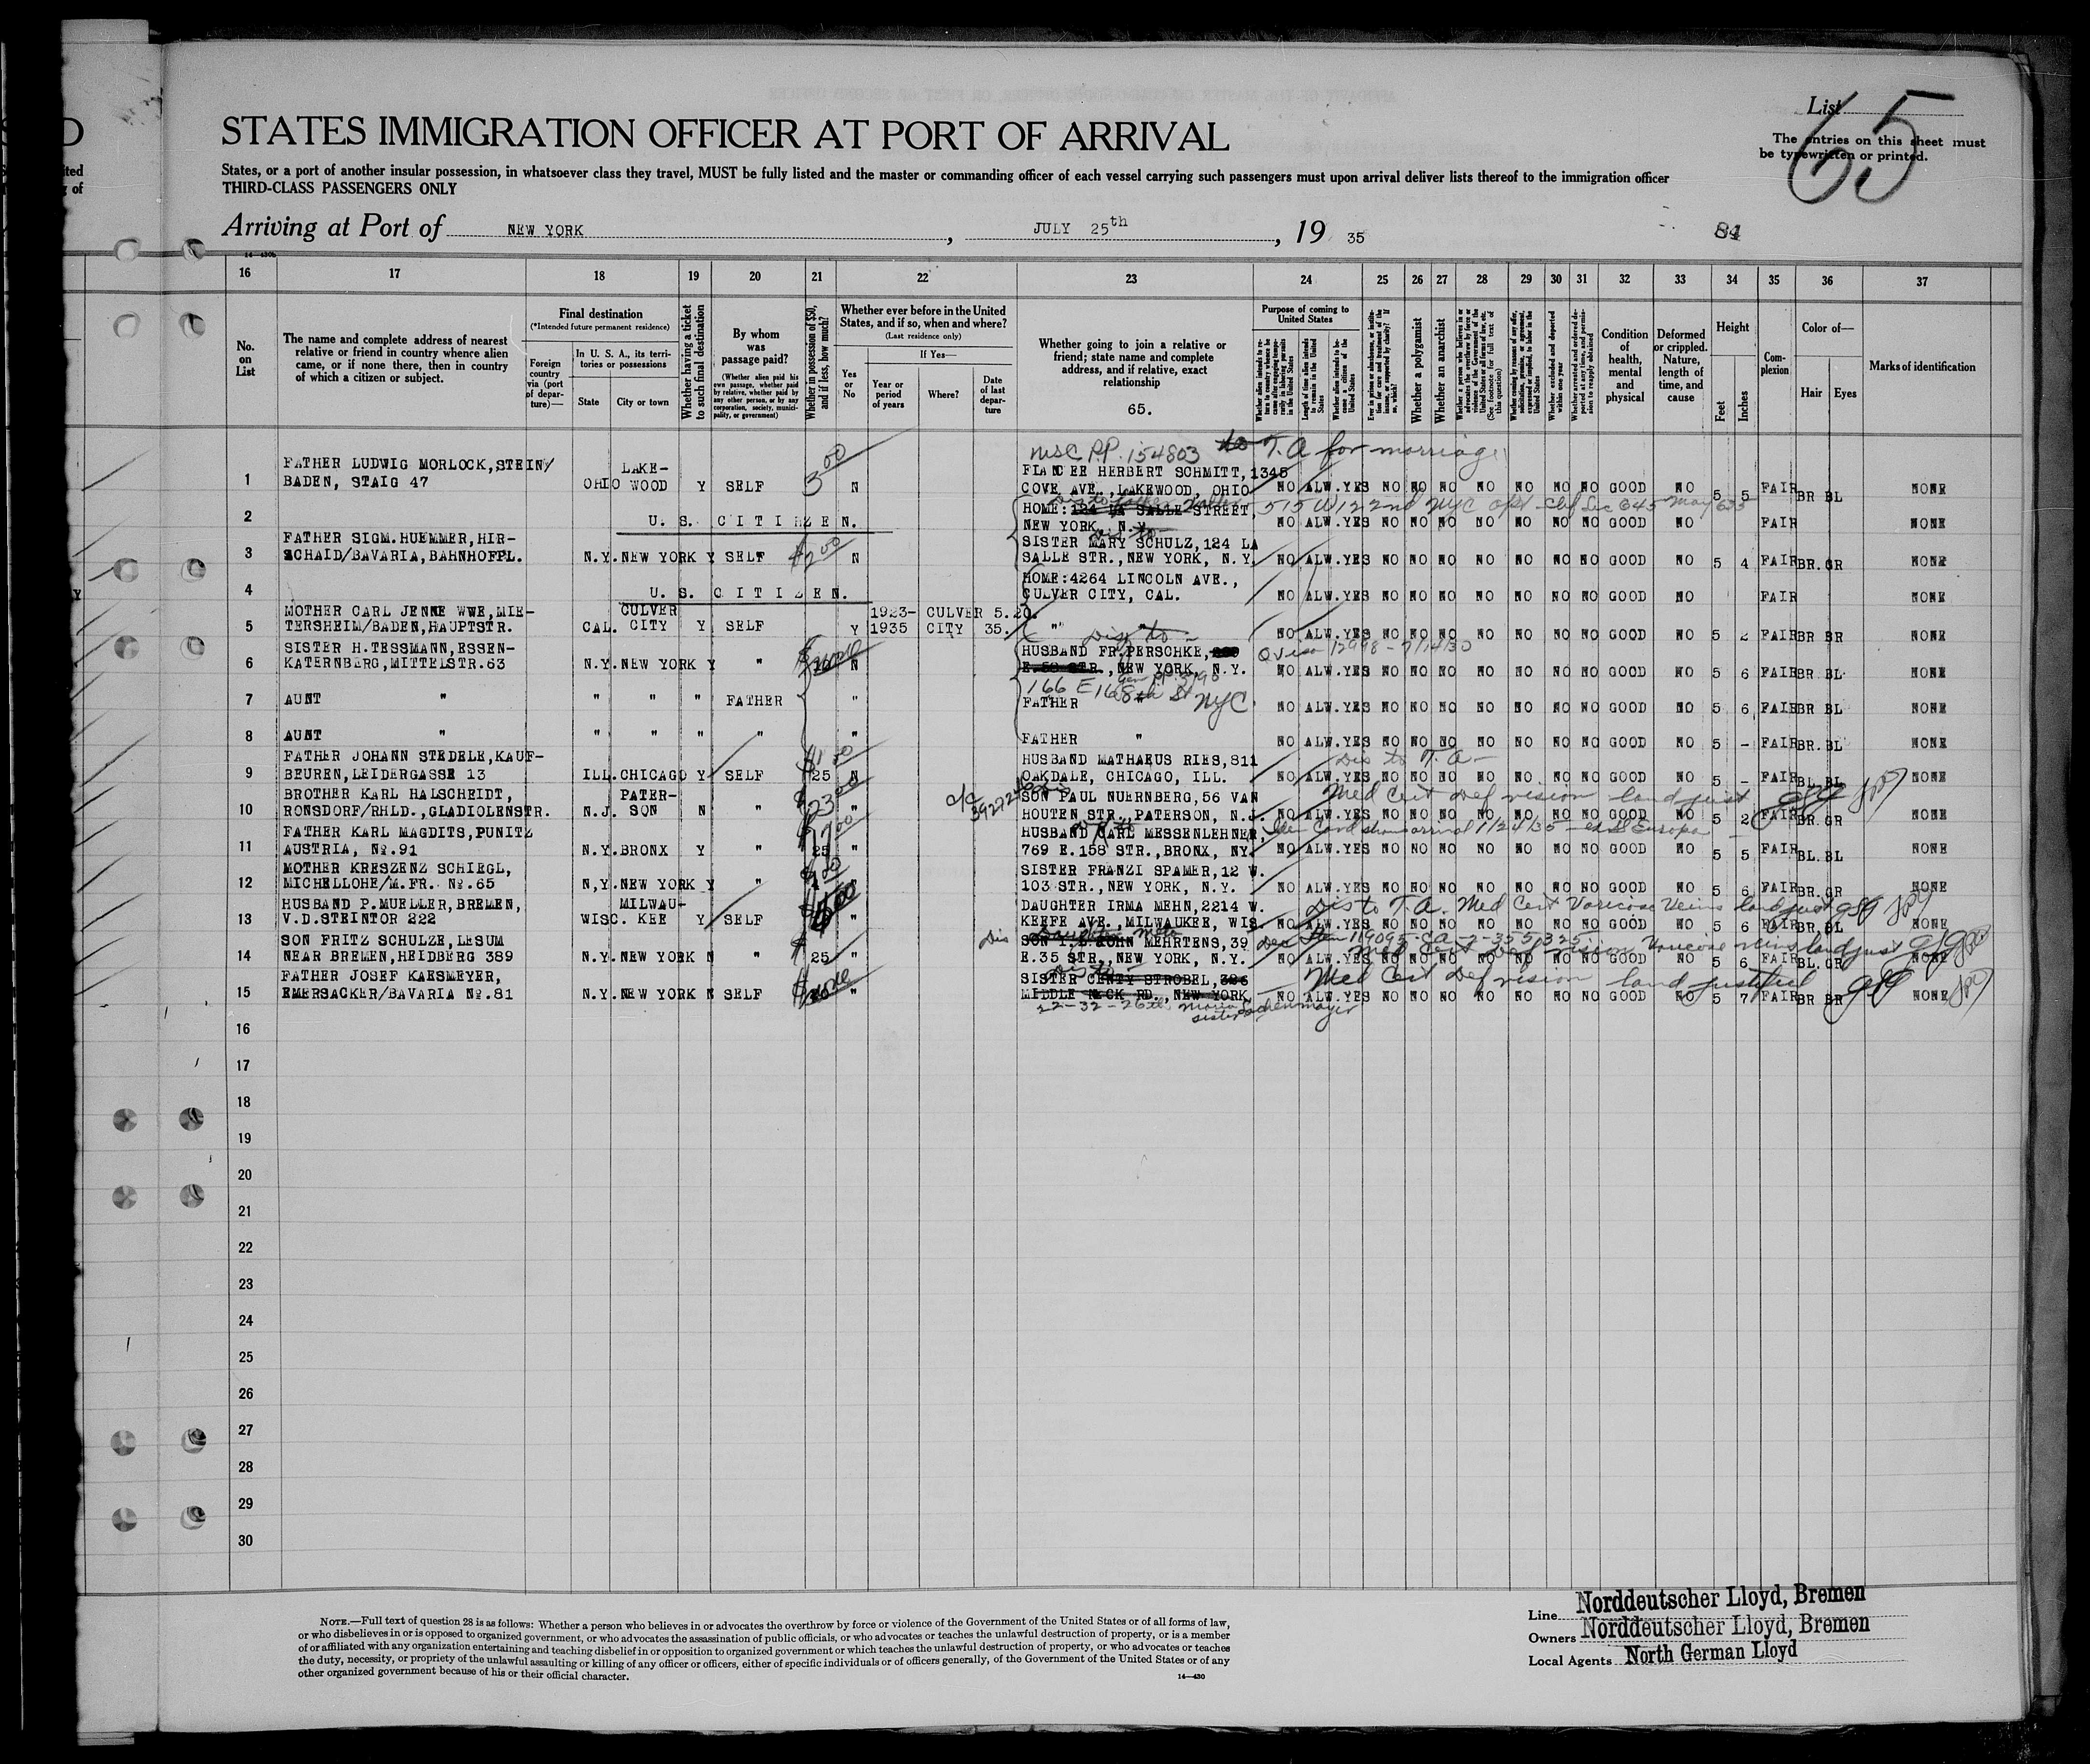 List
65
The entries on this sheet must
be typewritten or printed.
STATES IMMIGRATION OFFICER AT PORT OF ARRIVAL
States, or a port of another insular possession, in whatsoever class they travel, MUST be fully listed and the master or commanding officer of each vessel carrying such passengers must upon arrival deliver lists thereof to the immigration officer
THIRD-CLASS PASSENGERS ONLY
Arriving at Port of NEW YORK, JULY 25th, 19 35
84
16 17 18 19 20 21 22 23 24 25 26 27 28 29 30 31 32 33 34 35 36 37
No. on List
The name and complete address of nearest
relative or friend in country whence alien
came, or if none there, then in country
of which a citizen or subject.
Final destination
(*Intended future permanent residence)
Foreign country via (port of departure)—
In U. S. A., its territories or possessions
State
City or town
Whether having a ticket to such final destination
By whom was passage paid?
(Whether alien paid his own passage, whether paid by relative, whether paid by any other person, or by any corporation, society, municipality, or government)
Whether in possession of $50, and if less, how much?
Whether ever before in the United States, and if so, when and where?
(Last residence only)
If Yes—
Yes or No
Year or period of years
Where?
Date of last departure
Whether going to join a relative or
friend; state name and complete
address, and if relative, exact
relationship
65.
Purpose of coming to United States
Whether a polygamist
Whether an anarchist
Condition of health, mental and physical
Deformed or crippled. Nature, length of time, and cause
Height
Feet
Inches
Complexion
Color of—
Hair
Eyes
Marks of identification
MSC PP. 154803 to T.A for marriage
1 FATHER LUDWIG MORLOCK, STEIN/
BADEN, STAIG 47 OHIO LAKE-WOOD Y SELF 3 00 N FIANCEE HERBERT SCHMITT, 1345
COVE AVE., LAKEWOOD, OHIO NO ALW. YES NO NO NO NO NO NO NO GOOD NO 5 5 FAIR BR BL NONE
2 U. S. CITIZEN. HOME: 124 LA SALLE STREET,
NEW YORK, N.Y. 515 W 122nd NYC NO ALW. YES NO NO NO NO NO NO NO GOOD NO FAIR NONE
3 FATHER SIGM. HUEMMER, HIR-
SCHAID/BAVARIA, BAHNHOFPL. N.Y. NEW YORK Y SELF N SISTER MARY SCHULZ, 124 LA
SALLE STR., NEW YORK, N.Y. NO ALW. YES NO NO NO NO NO NO NO GOOD NO 5 4 FAIR BR. GR NONE
4 U. S. CITIZEN. HOME: 4264 LINCOLN AVE.,
CULVER CITY, CAL. NO ALW. YES NO NO NO NO NO NO NO GOOD NO FAIR NONE
5 MOTHER CARL JENNE WWE, MIE-
TERSHEIM/BADEN, HAUPTSTR. CAL. CULVER CITY Y SELF Y 1923-1935 CULVER CITY 5.20.35. " " NO ALW. YES NO NO NO NO NO NO NO GOOD NO 5 2 FAIR BR BR NONE
Dis to -
6 SISTER H. TESSMANN, ESSEN-
KATERNBERG, MITTELSTR. 63 N.Y. NEW YORK Y " none N HUSBAND FR. PERSCHKE,
E.58 STR., NEW YORK, N.Y. NO ALW. YES NO NO NO NO NO NO NO GOOD NO 5 6 FAIR BR. BL. NONE
166 E 168th St NYC
7 AUNT " " " " FATHER " FATHER NO ALW. YES NO NO NO NO NO NO NO GOOD NO 5 6 FAIR BR. BL NONE
8 AUNT " " " " " " FATHER " NO ALW. YES NO NO NO NO NO NO NO GOOD NO 5 - FAIR BR. BL NONE
9 FATHER JOHANN STEDELE, KAUF-
BEUREN, LEIDERGASSE 13 ILL. CHICAGO Y SELF 25 N HUSBAND MATHAEUS RIES, 811
OAKDALE, CHICAGO, ILL. Dis to T.A - NO ALW. YES NO NO NO NO NO NO NO GOOD NO 5 - FAIR BL. BL NONE
10 BROTHER KARL HALSCHEIDT,
RONSDORF/RHLD., GLADIOLENSTR. N.J. PATER-SON N " " SON PAUL NUERNBERG, 56 VAN
HOUTEN STR., PATERSON, N.J. Med Cert def vision land just NO ALW. YES NO NO NO NO NO NO NO GOOD NO 5 2 FAIR BR. GR NONE
11 FATHER KARL MAGDITS, PUNITZ
AUSTRIA, No. 91 N.Y. BRONX Y " 25 " HUSBAND CARL MESSENLEHNER,
769 E.158 STR., BRONX, NY. NO ALW. YES NO NO NO NO NO NO NO GOOD NO 5 5 FAIR BL. BL NONE
12 MOTHER KRESZENZ SCHIEGL,
MICHELLOHE/M.FR. No. 65 N,Y. NEW YORK Y " " SISTER FRANZI SPAMER, 12 W.
103 STR., NEW YORK, N.Y. NO ALW. YES NO NO NO NO NO NO NO GOOD NO 5 6 FAIR BR. GR NONE
13 HUSBAND P. MUELLER, BREMEN,
V.D. STEINTOR 222 WISC. MILWAU-KEE Y SELF " DAUGHTER IRMA MEHN, 2214 W.
KEEFE AVE., MILWAUKEE, WIS. Dis to T.A. Med Cert Varicose Veins land just NO ALW. YES NO NO NO NO NO NO NO GOOD NO 5 6 FAIR BR. BL NONE
14 SON FRITZ SCHULZE, LESUM
NEAR BREMEN, HEIDBERG 389 N.Y. NEW YORK N " 25 " MEHRTENS, 39
E.35 STR., NEW YORK, N.Y. NO ALW. YES NO NO NO NO NO NO NO GOOD NO 5 6 FAIR BL. GR NONE
15 FATHER JOSEF KAESMEYER,
EMERSACKER/BAVARIA No. 81 N.Y. NEW YORK N SELF none " SISTER CENTY STROBEL,
MIDDLE NECK RD., NEW YORK Med Cert Def vision land justified NO ALW. YES NO NO NO NO NO NO NO GOOD NO 5 7 FAIR BR BR NONE
22-32-26th
16
17
18
19
20
21
22
23
24
25
26
27
28
29
30
NOTE.—Full text of question 28 is as follows: Whether a person who believes in or advocates the overthrow by force or violence of the Government of the United States or of all forms of law,
or who disbelieves in or is opposed to organized government, or who advocates the assassination of public officials, or who advocates or teaches the unlawful destruction of property, or is a member
of or affiliated with any organization entertaining and teaching disbelief in or opposition to organized government or which teaches the unlawful destruction of property, or who advocates or teaches
the duty, necessity, or propriety of the unlawful assaulting or killing of any officer or officers, either of specific individuals or of officers generally, of the Government of the United States or of any
other organized government because of his or their official character.
14—430
Line Norddeutscher Lloyd, Bremen
Owners Norddeutscher Lloyd, Bremen
Local Agents North German Lloyd